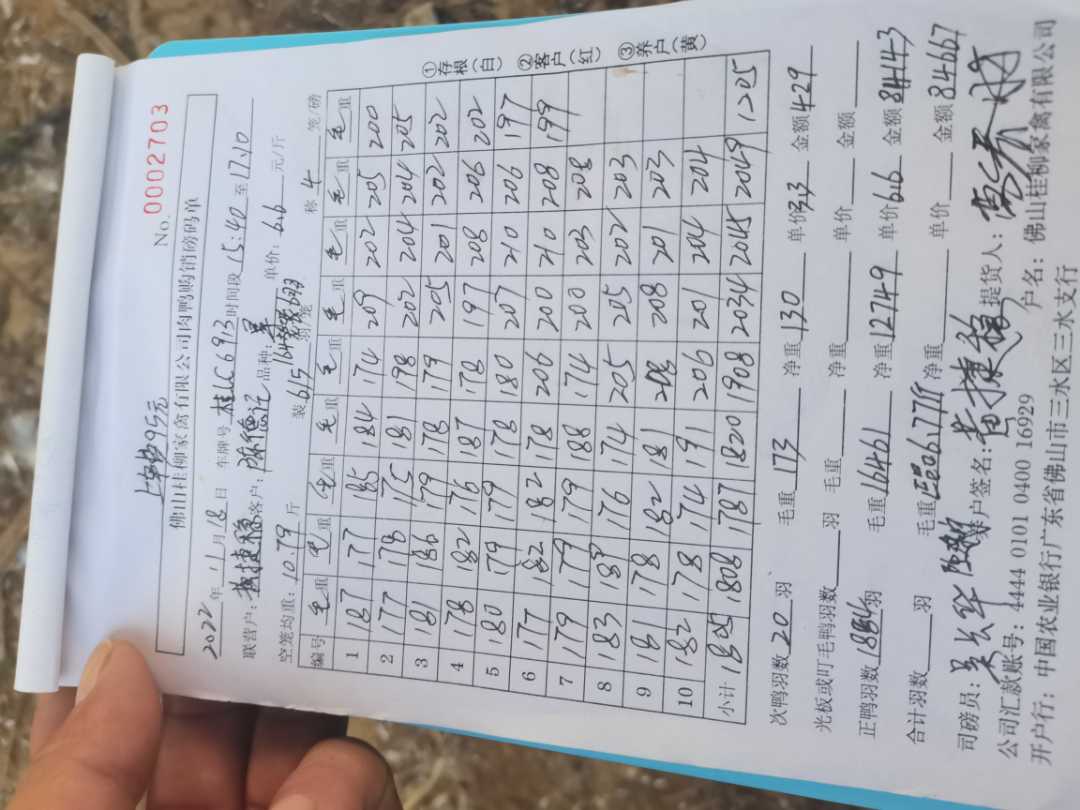 No. 0002703
佛山桂柳家禽有限公司肉鸭购销磅码单
2022年11月18日 车牌号 桂LC6913 时间段 15:40 至 17:10
联营户: 客户: 陈德记 品种: 单价: 6.6 元/斤
空笼均重: 10.79 斤 装 6.15 羽/笼 称 4 笼/磅
编号 毛重 毛重 毛重 毛重 毛重 毛重 毛重 毛重 毛重
1 187 177 185 184 174 209 202 205 200
2 177 178 175 181 198 202 204 204 205
3 181 186 179 178 179 205 201 202 202
4 178 182 176 187 178 197 208 206 202
5 180 179 179 178 180 207 210 206 197
6 177 182 182 178 206 200 210 208 199
7 179 179 179 188 174 200 203 208
8 183 176 174 205 205 202 203
9 181 178 182 181 208 201 203
10 182 178 174 191 206 201 204 204
小计 1805 1808 1787 1820 1908 2034 2045 2049 1205
①存根(白) ②客户(红) ③养户(黄)
次鸭羽数 20 羽 毛重 173 净重 130 单价 3.3 金额 429
光板或叮毛鸭羽数 羽 毛重 净重 单价 金额
正鸭羽数 1886 羽 毛重 16461 净重 12749 单价 6.6 金额 84143
合计羽数 羽 毛重 净重 单价 金额 84667
司磅员: 养户签名: 黄捷稳 提货人:
公司汇款账号: 4444 0101 0400 16929 户名: 佛山桂柳家禽有限公司
开户行: 中国农业银行广东省佛山市三水区三水支行